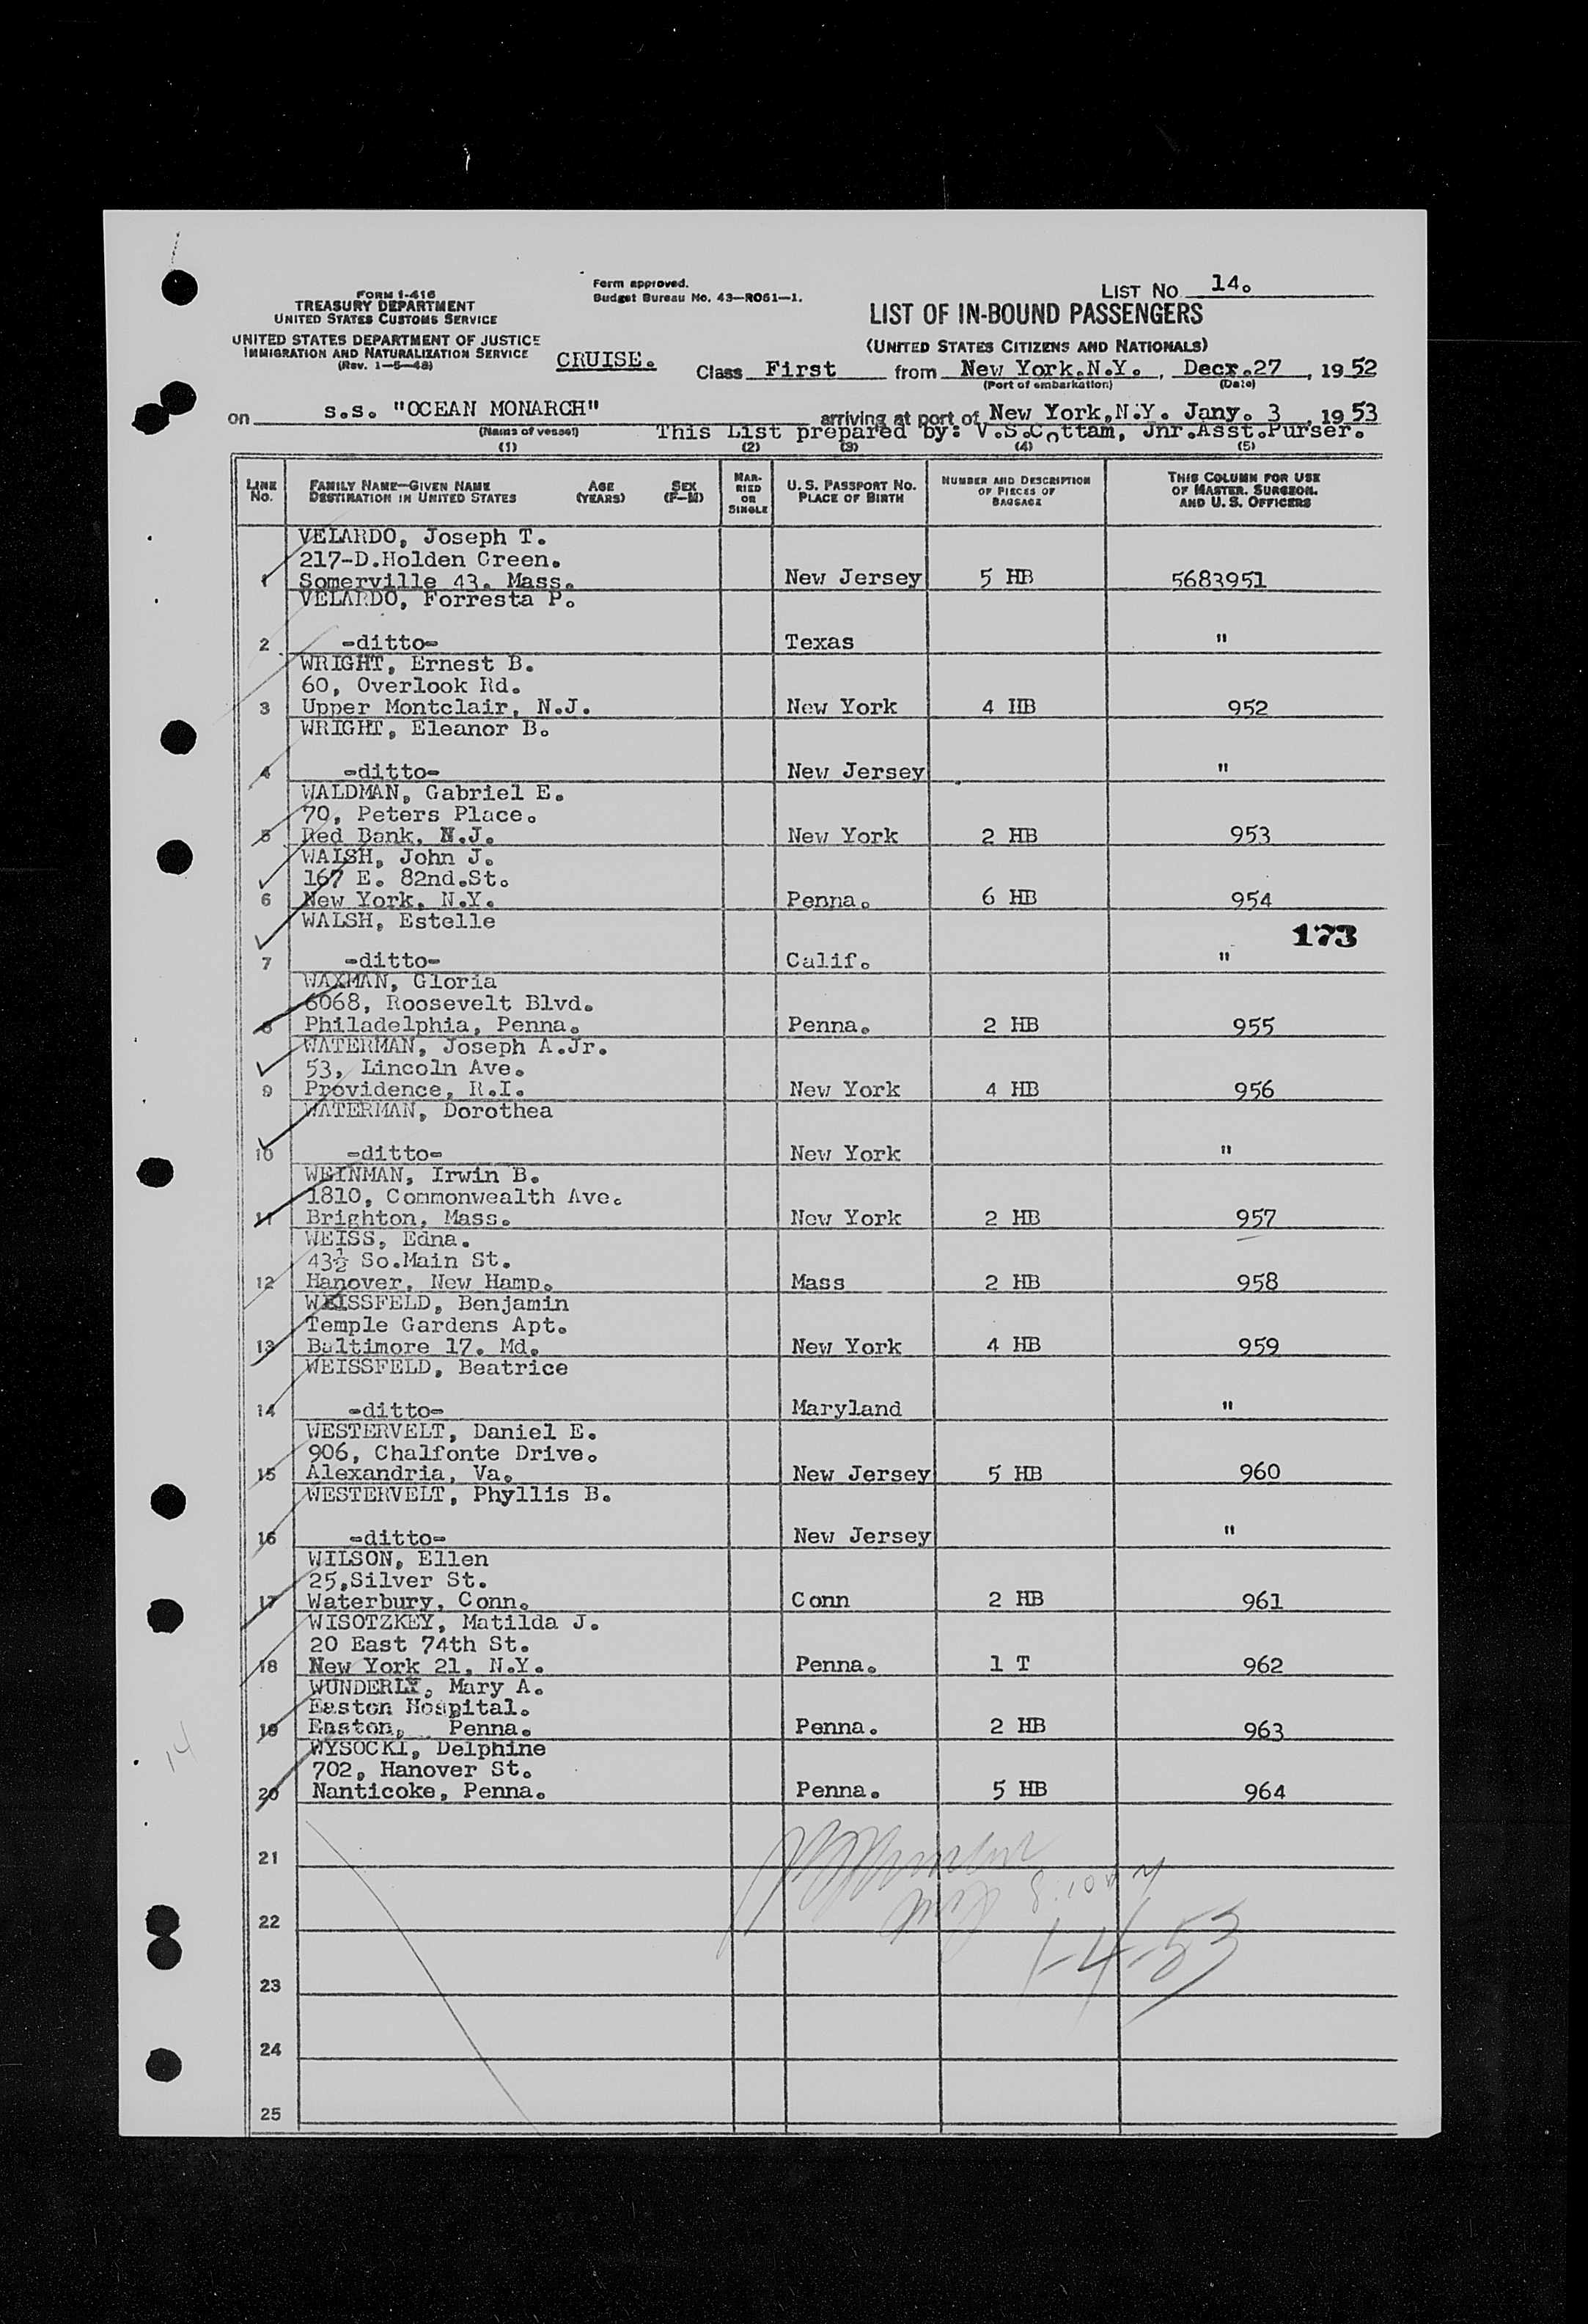 LIST NO. 14.
Form approved.
Budget Bureau No. 43—R061—1.
FORM I-416
TREASURY DEPARTMENT
UNITED STATES CUSTOMS SERVICE
UNITED STATES DEPARTMENT OF JUSTICE
IMMIGRATION AND NATURALIZATION SERVICE
(Rev. 1—5—48)
LIST OF IN-BOUND PASSENGERS
(UNITED STATES CITIZENS AND NATIONALS)
CRUISE. Class First from New York.N.Y. , Decr.27 , 19 52
(Port of embarkation) (Date)
on s.s. "OCEAN MONARCH" arriving at port of New York,N.Y. Jany. 3 , 19 53
(Name of vessel) This List prepared by: V.S.Cottam, Jnr.Asst.Purser.
(1) (2) (3) (4) (5)
LINE NO. FAMILY NAME—GIVEN NAME DESTINATION IN UNITED STATES AGE (YEARS) SEX (F—M) MARRIED OR SINGLE U. S. PASSPORT NO. PLACE OF BIRTH NUMBER AND DESCRIPTION OF PIECES OF BAGGAGE THIS COLUMN FOR USE OF MASTER, SURGEON, AND U. S. OFFICERS
VELARDO, Joseph T.
217-D.Holden Green.
1 Somerville 43. Mass. New Jersey 5 HB 5683951
VELARDO, Forresta P.
2 -ditto- Texas "
WRIGHT, Ernest B.
60, Overlook Rd.
3 Upper Montclair, N.J. New York 4 HB 952
WRIGHT, Eleanor B.
4 -ditto- New Jersey "
WALDMAN, Gabriel E.
70, Peters Place.
5 Red Bank, N.J. New York 2 HB 953
WALSH, John J.
167 E. 82nd.St.
6 New York, N.Y. Penna. 6 HB 954
WALSH, Estelle
173
7 -ditto- Calif. "
WAXMAN, Gloria
6068, Roosevelt Blvd.
8 Philadelphia, Penna. Penna. 2 HB 955
WATERMAN, Joseph A.Jr.
53, Lincoln Ave.
9 Providence, R.I. New York 4 HB 956
WATERMAN, Dorothea
10 -ditto- New York "
WEINMAN, Irwin B.
1810, Commonwealth Ave.
11 Brighton, Mass. New York 2 HB 957
WEISS, Edna.
43½ So.Main St.
12 Hanover, New Hamp. Mass 2 HB 958
WEISSFELD, Benjamin
Temple Gardens Apt.
13 Baltimore 17. Md. New York 4 HB 959
WEISSFELD, Beatrice
14 -ditto- Maryland "
WESTERVELT, Daniel E.
906, Chalfonte Drive.
15 Alexandria, Va. New Jersey 5 HB 960
WESTERVELT, Phyllis B.
16 -ditto- New Jersey "
WILSON, Ellen
25,Silver St.
17 Waterbury, Conn. Conn 2 HB 961
WISOTZKEY, Matilda J.
20 East 74th St.
18 New York 21, N.Y. Penna. 1 T 962
WUNDERLY, Mary A.
Easton Hospital.
19 Easton, Penna. Penna. 2 HB 963
14
WYSOCKI, Delphine
702, Hanover St.
20 Nanticoke, Penna. Penna. 5 HB 964
21
22
1-4-53
23
24
25